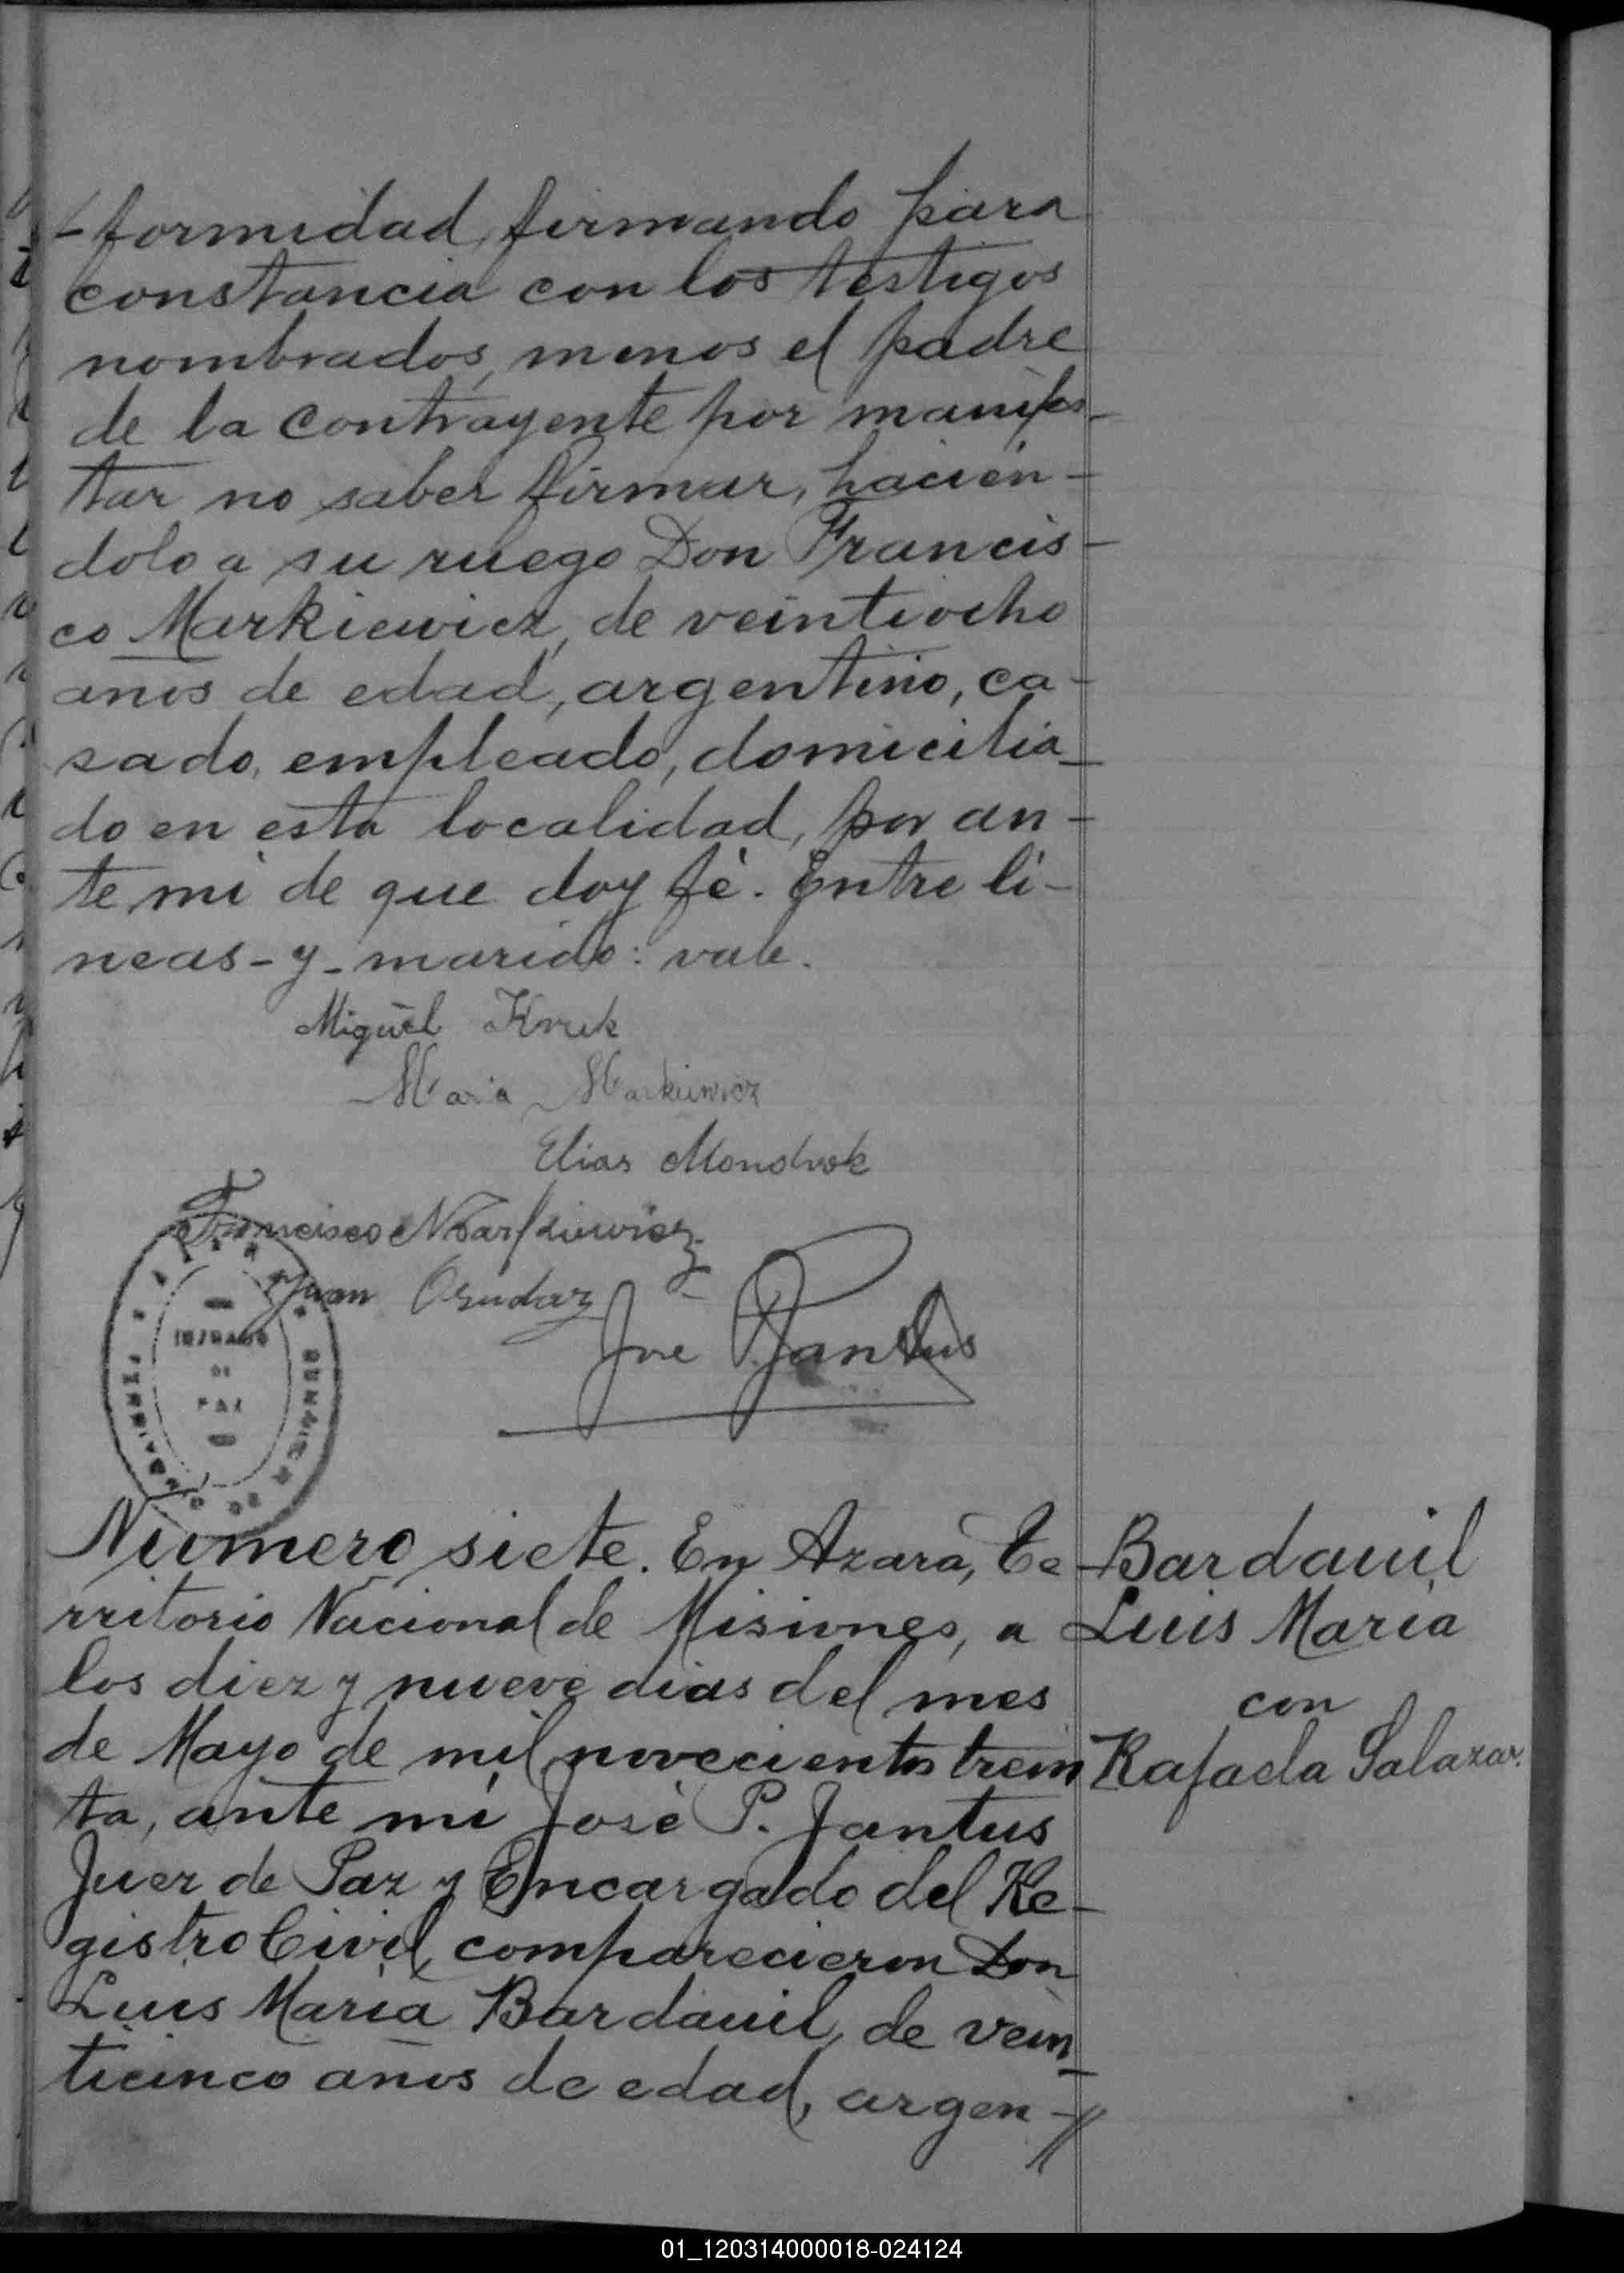 -formidad, firmando para
constancia con los testigos
nombrados, menos el padre
de la contrayente por manifes-
tar no saber firmar, hacién-
dolo a su ruego Don Francis-
co Markiewicz, de veintiocho
años de edad, argentino, ca-
sado, empleado, domicilia-
do en esta localidad, por an-
te mi de que doy fé. Entre li-
neas-y-marido: vale.
Miguel Kruk
Maria Markiewicz
Elias
Francisco Markiewicz
Juan
José P. Jantus
JUZGADO
DE
PAZ
Número siete. En Azara, Te-
rritorio Nacional de Misiones, a
los diez y nueve dias del mes
de Mayo de mil novecientos trein
ta, ante mi José P. Jantus
Juez de Paz y Encargado del Re-
gistro Civil, comparecieron Don
Luis María Bardauil, de vein-
ticinco años de edad, argen-//
Bardauil
Luis María
con
Rafaela Salazar.
01_120314000018-024124